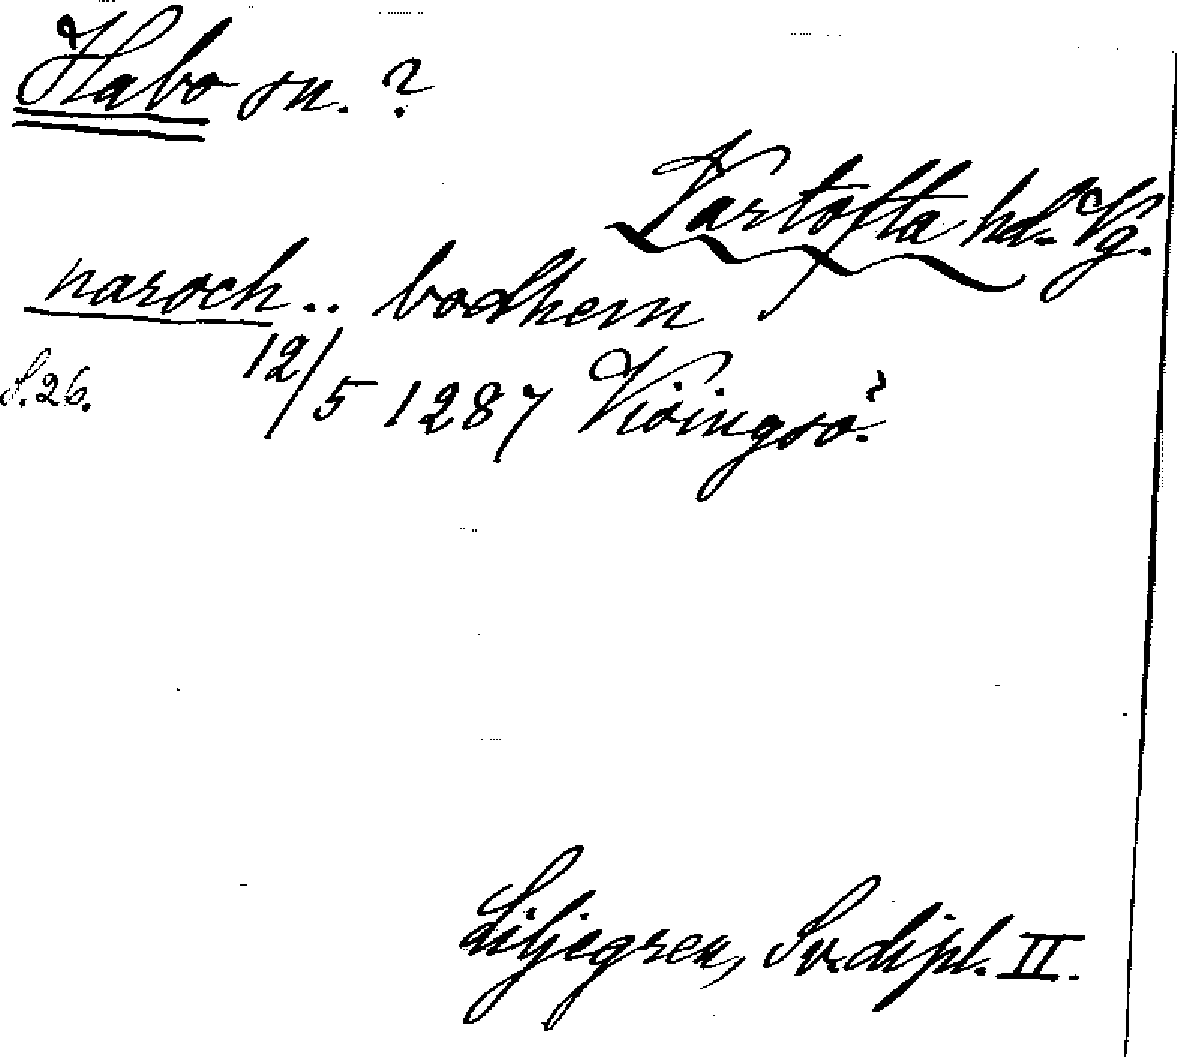 Habo sn. ?
Vartofta hd. Vg.
naroch .. bodhem
S. 26.
12/5 1287 Visingsö?
Liljegren, Sv. dipl. II.